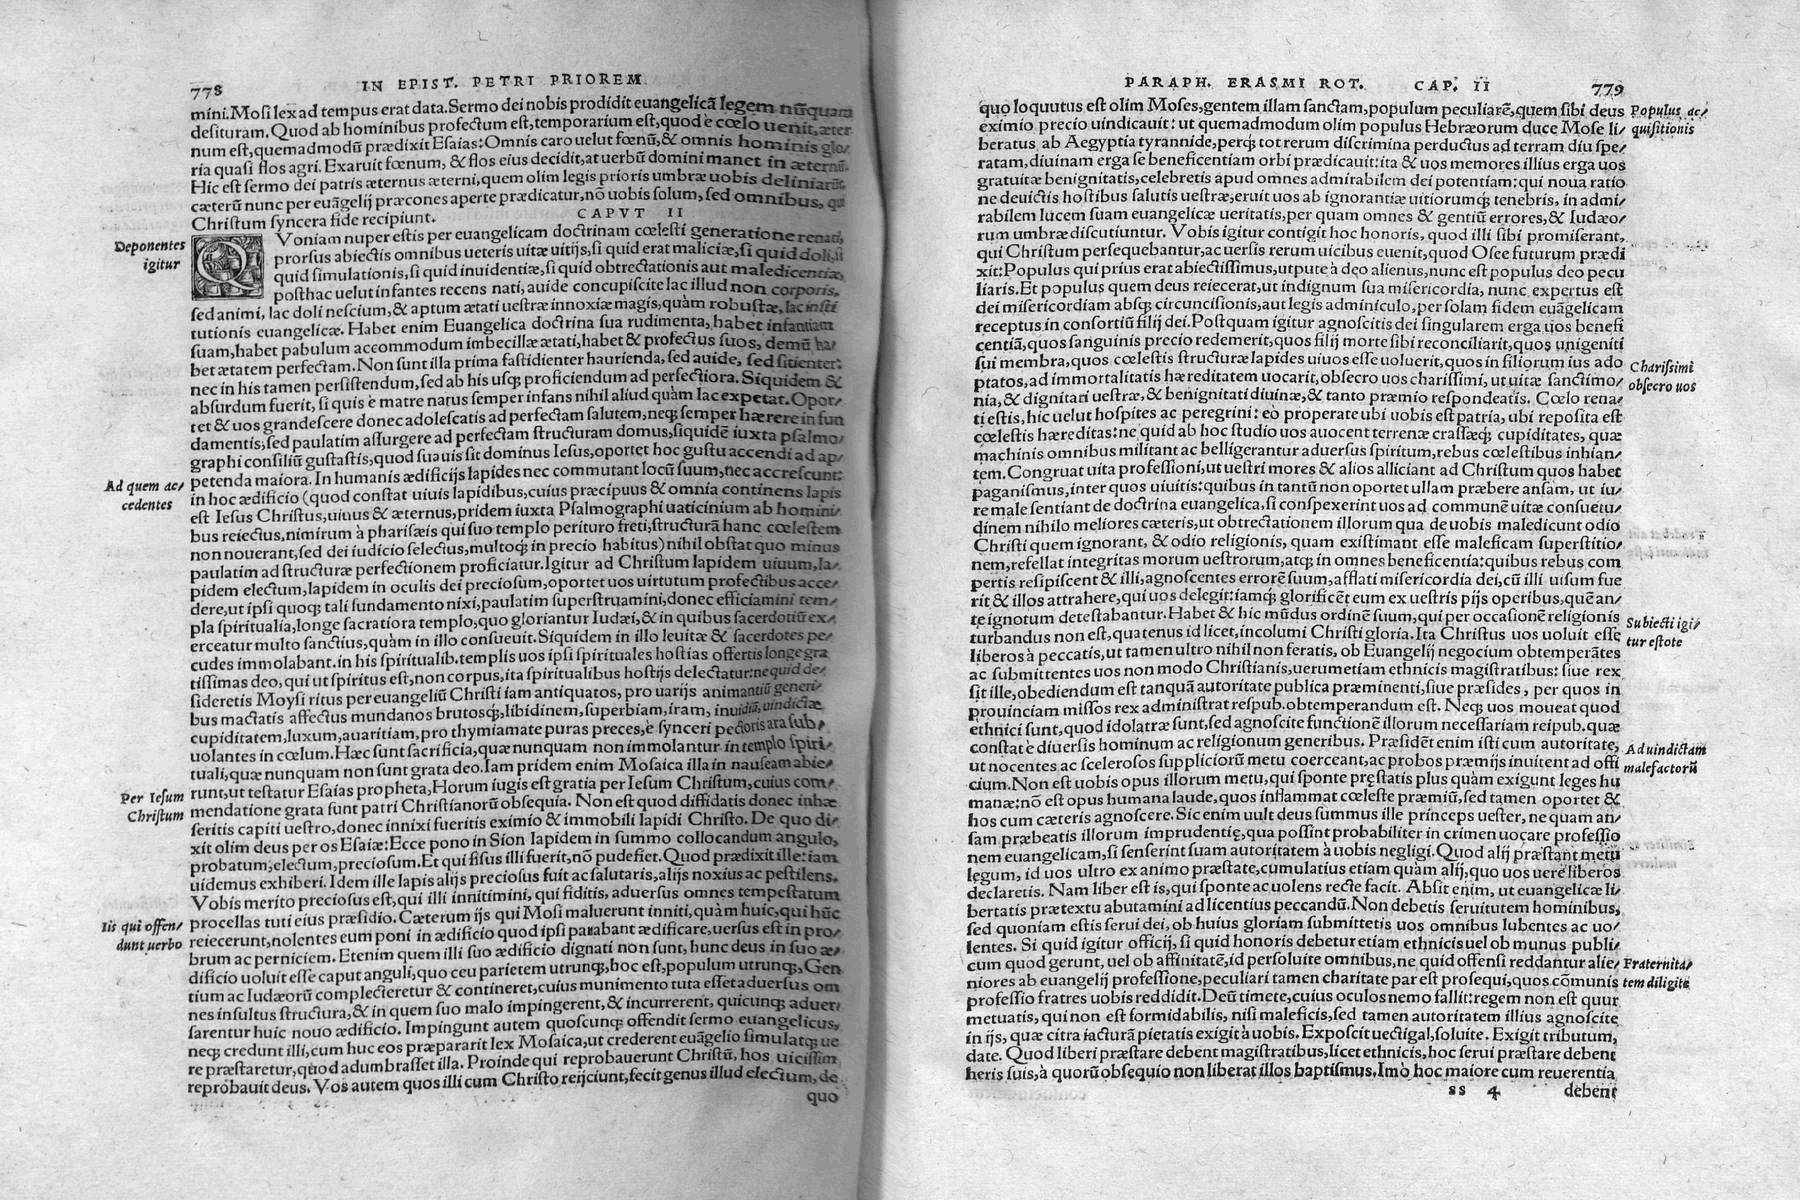 778
IN EPIST. PETRI PRIOREM
mini.Mosi lex ad tempus erat data.Sermo dei nobis prodidit euangelicã legem nũquam
desituram. Quod ab hominibus profectum est,temporarium est,quod è cœlo uenit,æter
num est,quemadmodũ prædixit Esaias:Omnis caro uelut fœnũ,& omnis hominis glo/
ria quasi flos agri. Exaruit fœnum, & flos eius decidit,at uerbũ domini manet in æternũ.
Hic est sermo dei patris æternus æterni,quem olim legis prioris umbræ uobis deliniarũt,
cæterũ nunc per euãgelij præcones aperte prædicatur,nõ uobis solum,sed omnibus, qui
Christum syncera fide recipiunt.
CAPVT II
Deponentes
igitur
QVoniam nuper estis per euangelicam doctrinam cœlesti generatione renati,
prorsus abiectis omnibus ueteris uitæ uitijs,si quid erat maliciæ,si quid doli,si
quid simulationis,si quid inuidentiæ,si quid obtrectationis aut maledicentiæ,
posthac uelut infantes recens nati, auide concupiscite lac illud non corporis,
sed animi, lac doli nescium,& aptum ætati uestræ innoxiæ magis,quàm robustæ, lac insti
tutionis euangelicæ. Habet enim Euangelica doctrina sua rudimenta, habet infantiam
suam,habet pabulum accommodum imbecillæ ætati,habet & profectus suos, demũ ha/
bet ætatem perfectam. Non sunt illa prima fastidienter haurienda, sed auide, sed sitienter:
nec in his tamen persistendum,sed ab his usq; proficiendum ad perfectiora. Siquidem &
absurdum fuerit, si quis è matre natus semper infans nihil aliud quàm lac expetat. Opor/
tet & uos grandescere donec adolescatis ad perfectam salutem,neq; semper hærere in fun
damentis,sed paulatim assurgere ad perfectam structuram domus,siquidẽ iuxta psalmo/
graphi consiliũ gustastis,quod suauis sit dominus Iesus,oportet hoc gustu accendi ad ap/
petenda maiora. In humanis ædificijs lapides nec commutant locũ suum,nec accrescunt:
Ad quem ac/
cedentes
in hoc ædificio (quod constat uiuis lapidibus,cuius præcipuus & omnia continens lapis
est Iesus Christus,uiuus & æternus,pridem iuxta Psalmographi uaticinium ab homini/
bus reiectus,nimirum à pharisæis qui suo templo perituro freti,structurã hanc cœlestem
non nouerant,sed dei iudicio selectus,multoq; in precio habitus) nihil obstat quo minus
paulatim ad structuræ perfectionem proficiatur.Igitur ad Christum lapidem uiuum,la/
pidem electum,lapidem in oculis dei preciosum,oportet uos uirtutum profectibus acce/
dere,ut ipsi quoq; tali fundamento nixi,paulatim superstruamini,donec efficiamini tem/
pla spiritualia,longe sacratiora templo,quo gloriantur Iudæi,& in quibus sacerdotiũ ex/
erceatur multo sanctius,quàm in illo consueuit. Siquidem in illo leuitæ & sacerdotes pe/
cudes immolabant.in his spiritualib.templis uos ipsi spirituales hostias offertis longe gra
tissimas deo,qui ut spiritus est,non corpus,ita spiritualibus hostijs delectatur:ne quid de/
sideretis Moysi ritus per euangeliũ Christi iam antiquatos, pro uarijs animantiũ generi/
bus mactatis affectus mundanos brutosq;,libidinem,superbiam,iram, inuidiã,uindictæ
cupiditatem,luxum,auaritiam,pro thymiamate puras preces,è synceri pectioris ara sub/
uolantes in cœlum. Hæc sunt sacrificia,quæ nunquam non immolantur in templo spiri/
tuali,quæ nunquam non sunt grata deo.Iam pridem enim Mosaica illa in nauseam abie/
Per Iesum
Christum
runt,ut testatur Esaias propheta,Horum iugis est gratia per Iesum Christum,cuius com/
mendatione grata sunt patri Christianorũ obsequia. Non est quod diffidatis donec inhæ
seritis capiti uestro,donec innixi fueritis eximio & immobili lapidi Christo. De quo di/
xit olim deus per os Esaiæ:Ecce pono in Sion lapidem in summo collocandum angulo,
probatum,electum,preciosum.Et qui fisus illi fuerit,nõ pudefiet.Quod prædixit ille:iam
uidemus exhiberi. Idem ille lapis alijs preciosus fuit ac salutaris,alijs noxius ac pestilens.
Vobis merito preciosus est,qui illi innitimini, qui fiditis, aduersus omnes tempestatum
Iis qui offen/
dunt uerbo
procellas tuti eius præsidio. Cæterum ijs qui Mosi maluerunt inniti,quàm huic,qui hũc
reiecerunt,nolentes eum poni in ædificio quod ipsi parabant ædificare,uersus est in pro/
brum ac perniciem. Etenim quem illi suo ædificio dignati non sunt, hunc deus in suo æ/
dificio uoluit esse caput anguli,quo ceu parietem utrunq;,hoc est,populum utrunq;,Gen
tium ac Iudæorũ complecteretur & contineret,cuius munimento tuta esset aduersus om
nes insultus structura,& in quem suo malo impingerent,& incurrerent, quicunq; aduer/
sarentur huic nouo ædificio. Impingunt autem quoscunq; offendit sermo euangelicus,
neq; credunt illi,cum huc eos præpararit lex Mosaica,ut crederent euãgelio simulatq; ue
re præstaretur,quod adumbrasset illa. Proinde qui reprobauerunt Christũ, hos uicissim
reprobauit deus. Vos autem quos illi cum Christo reijciunt,fecit genus illud electum, de
quo
PARAPH. ERASMI ROT. CAP. II
779
quo loquutus est olim Moses,gentem illam sanctam,populum peculiarẽ,quem sibi deus
Populus ac/
quisitionis
eximio precio uindicauit: ut quemadmodum olim populus Hebræorum duce Mose li/
beratus ab Aegyptia tyrannide,perq; tot rerum discrimina perductus ad terram diu spe/
ratam, diuinam erga se beneficentiam orbi prædicauit:ita & uos memores illius erga uos
gratuitæ benignitatis,celebretis apud omnes admirabilem dei potentiam:qui noua ratio
ne deuictis hostibus salutis uestræ,eruit uos ab ignorantiæ uitiorumq; tenebris, in admi/
rabilem lucem suam euangelicæ ueritatis,per quam omnes & gentiũ errores,& Iudæo/
rum umbræ discutiuntur. Vobis igitur contigit hoc honoris, quod illi sibi promiserant,
qui Christum persequebantur,ac uersis rerum uicibus euenit,quod Osee futurum prædi
xit:Populus qui prius erat abiectissimus,utpute à deo alienus,nunc est populus deo pecu
liaris.Et populus quem deus reiecerat,ut indignum sua misericordia, nunc expertus est
dei misericordiam absq; circuncisionis,aut legis adminiculo,per solam fidem euãgelicam
receptus in consortiũ filij dei.Postquam igitur agnoscitis dei singularem erga uos benefi
centiã,quos sanguinis precio redemerit,quos filij morte sibi reconciliarit,quos unigeniti
sui membra, quos cœlestis structuræ lapides uiuos esse uoluerit,quos in filiorum ius ado
Charissimi
obsecro uos
ptatos,ad immortalitatis hæreditatem uocarit,obsecro uos charissimi, ut uitæ sanctimo/
nia,& dignitati uestræ,& benignitati diuinæ,& tanto præmio respondeatis. Cœlo rena/
ti estis,hic uelut hospites ac peregrini: eò properate ubi uobis est patria, ubi reposita est
cœlestis hæreditas:ne quid ab hoc studio uos auocent terrenæ crassæq; cupiditates, quæ
machinis omnibus militant ac belligerantur aduersus spiritum,rebus cœlestibus inhian/
tem.Congruat uita professioni,ut uestri mores & alios alliciant ad Christum quos habet
paganismus,inter quos uiuitis:quibus in tantũ non oportet ullam præbere ansam, ut iu/
re male sentiant de doctrina euangelica,si conspexerint uos ad communẽ uitæ consuetu/
dinem nihilo meliores cæteris,ut obtrectationem illorum qua de uobis maledicunt odio
Christi quem ignorant, & odio religionis, quam existimant esse maleficam superstitio/
nem,refellat integritas morum uestrorum,atq; in omnes beneficentia:quibus rebus com
pertis resipiscent & illi,agnoscentes errorẽ suum,afflati misericordia dei,cũ illi uisum fue
rit & illos attrahere,qui uos delegit:iamq; glorificẽt eum ex uestris pijs operibus,quẽ an/
te ignotum detestabantur. Habet & hic mũdus ordinẽ suum,qui per occasionẽ religionis
Subiecti igi/
tur estote
turbandus non est,quatenus id licet,incolumi Christi gloria. Ita Christus uos uoluit esse
liberos à peccatis,ut tamen ultro nihil non feratis, ob Euangelij negocium obtemperãtes
ac submittentes uos non modo Christianis,uerumetiam ethnicis magistratibus: siue rex
sit ille,obediendum est tanquã autoritate publica præminenti,siue præsides, per quos in
prouinciam missos rex administrat respub.obtemperandum est. Neq; uos moueat quod
ethnici sunt,quod idolatræ sunt,sed agnoscite functionẽ illorum necessariam reipub.quæ
constat è diuersis hominum ac religionum generibus. Præsidẽt enim isti cum autoritate,
Ad uindictam
malefactorũ
ut nocentes ac scelerosos suppliciorũ metu coerceant,ac probos præmijs inuitent ad offi
cium.Non est uobis opus illorum metu,qui sponte pręstatis plus quàm exigunt leges hu
manæ:nõ est opus humana laude,quos inflammat cœleste præmiũ,sed tamen oportet &
hos cum cæteris agnoscere. Sic enim uult deus summus ille princeps uester, ne quam an/
sam præbeatis illorum imprudentię,qua possint probabiliter in crimen uocare professio
nem euangelicam,si senserint suam autoritatem à uobis negligi. Quod alij præstant metu
legum, id uos ultro ex animo præstate,cumulatius etiam quàm alij,quo uos uerè liberos
declaretis. Nam liber est is,qui sponte ac uolens recte facit. Absit enim, ut euangelicæ li/
bertatis prætextu abutamini ad licentius peccandũ.Non debetis seruitutem hominibus,
sed quoniam estis serui dei, ob huius gloriam submittetis uos omnibus lubentes ac uo/
lentes. Si quid igitur officij, si quid honoris debetur etiam ethnicis uel ob munus publi/
Fraternita/
tem diligite
cum quod gerunt, uel ob affinitatẽ,id persoluite omnibus,ne quid offensi reddantur alie/
niores ab euangelij professione,peculiari tamen charitate par est prosequi,quos cõmunis
professio fratres uobis reddidit.Deũ timete,cuius oculos nemo fallit:regem non est quur
metuatis, qui non est formidabilis, nisi maleficis,sed tamen autoritatem illius agnoscite
in ijs, quæ citra iacturã pietatis exigit à uobis. Exposcit uectigal,soluite. Exigit tributum,
date. Quod liberi præstare debent magistratibus,licet ethnicis,hoc serui præstare debent
heris suis,à quorũ obsequio non liberat illos baptismus. Imò hoc maiore cum reuerentia
ss 4
debent